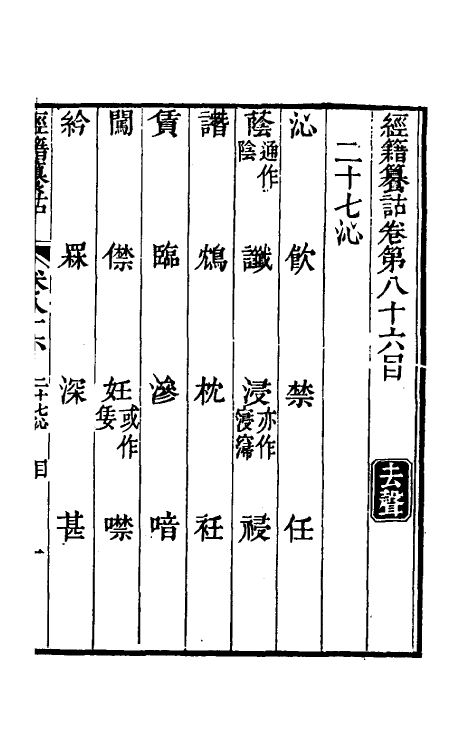 經籍籑詁卷第八十六目 去聲
二十七沁
沁 飲 禁 任
蔭通作陰 讖 浸亦作寖 祲
譖 鴆 枕 衽
賃 臨 滲 喑
闖 僸 妊或作 噤
紟 罧 深 甚
經籍籑詁 卷八十六 二十七沁 目 一